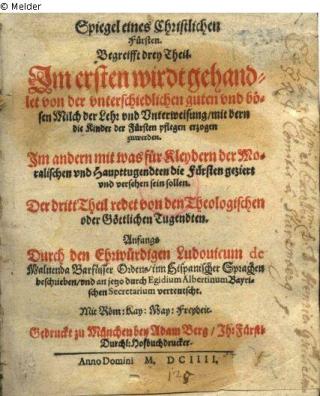 © Melder
Spiegel eines Christlichen
Fürsten.
Begreifft drey Theil.
Im ersten wirdt gehand-
let von der vnterschiedlichen guten vnd bö-
sen Milch der Lehr vnd Vnterweisung/mit dern
die Kinder der Fürsten pflegen erzogen
zuwerden.
Im andern mit was für Kleydern der Mo-
ralischen vnd Haupttugendten die Fürsten geziert
vnd versehen sein sollen.
Der dritt Theil redet von den Theologischen
oder Göttlichen Tugendten.
Anfangs
Durch den Ehrwürdigen Ludouicum de
Maluenda Barfüsser Ordens/inn Hispanischer Sprachen
beschrieben/vnd an jetzo durch Egidium Albertinum Bayri-
schen Secretarium verteutscht.
Mit Röm: Kay: May: Freyheit.
Gedruckt zu München bey Adam Berg/Ihr Fürstl:
Durchl: Hofbuchdrucker.
Anno Domini M. DCIIII.